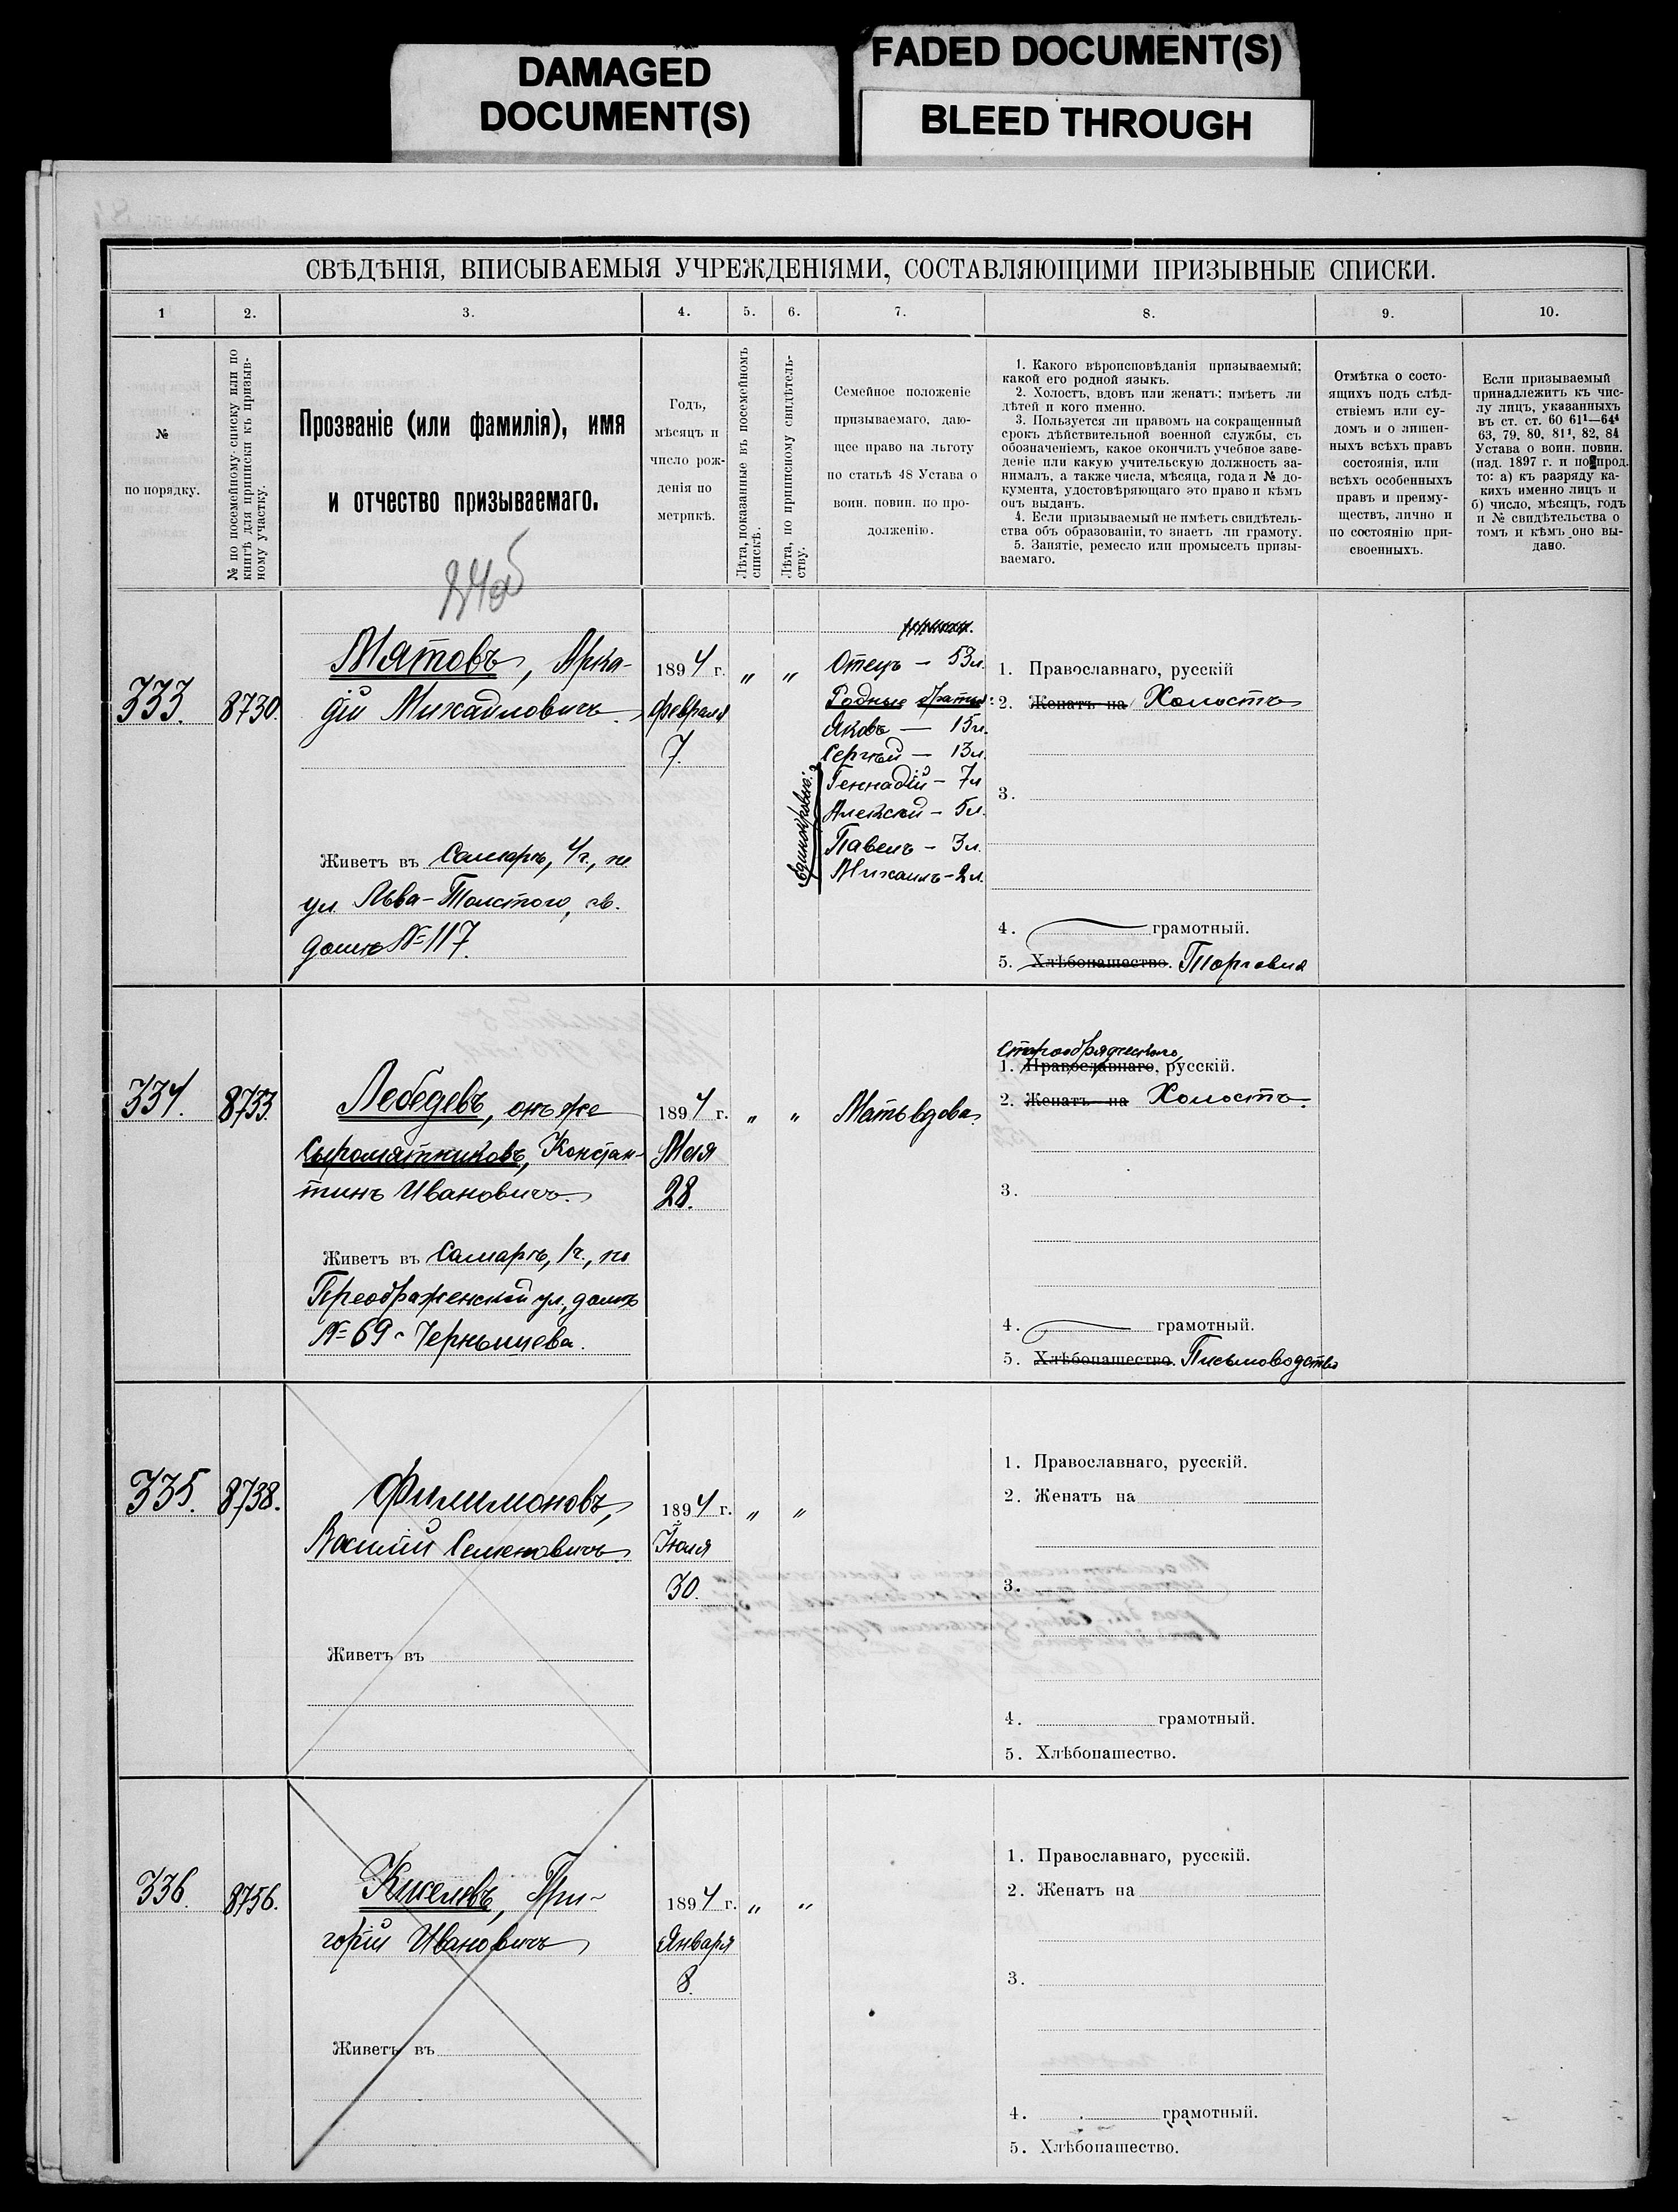 DAMAGED
DOCUMENT(S)
FADED DOCUMENT(S)
BLEED THROUGH
СВѢДѢНІЯ, ВПИСЫВАЕМЫЯ УЧРЕЖДЕНІЯМИ, СОСТАВЛЯЮЩИМИ ПРИЗЫВНЫЕ СПИСКИ.
1
2.
3.
4.
5.
6.
7.
8.
9.
10.
№
по порядку.
№ по посемейному списку или по
книгѣ для приписки къ призыв-
ному участку.
Прозваніе (или фамилія), имя
и отчество призываемаго.
Годъ,
мѣсяцъ и
число рож-
денія по
метрикѣ.
Лѣта, показанные въ посемейномъ
спискѣ.
Лѣта, по приписному свидѣтель-
ству.
Семейное положеніе
призываемаго, даю-
щее право на льготу
по статьѣ 48 Устава о
воин. повин. по про-
долженію.
1. Какого вѣроисповѣданія призываемый;
какой его родной языкъ.
2. Холостъ, вдовъ или женатъ; имѣетъ ли
дѣтей и кого именно.
3. Пользуется ли правомъ на сокращенный
срокъ дѣйствительной военной службы, съ
обозначеніемъ, какое окончилъ учебное заве-
деніе или какую учительскую должность за-
нималъ, а также числа, мѣсяца, года и № до-
кумента, удостовѣряющаго это право и кѣмъ
онъ выданъ.
4. Если призываемый не имѣетъ свидѣтель-
ства объ образованіи, то знаетъ ли грамоту.
5. Занятіе, ремесло или промыселъ призы-
ваемаго.
Отмѣтка о состо-
ящихъ подъ слѣд-
ствіемъ или су-
домъ и о лишен-
ныхъ всѣхъ правъ
состоянія, или
всѣхъ особенныхъ
правъ и преиму-
ществъ, лично и
по состоянію при-
своенныхъ.
Если призываемый
принадлежитъ къ чис-
лу лицъ, указанныхъ
въ ст. ст. 60 61¹—64⁴
63, 79, 80, 81¹, 82, 84
Устава о воин. повин.
(изд. 1897 г. и по прод.
то: а) къ разряду ка-
кихъ именно лицъ и
б) число, мѣсяцъ, годъ
и № свидѣтельства о
томъ и кѣмъ оно вы-
дано.
333.
8730.
Мятовъ, Арка-
дій Михайловичъ
Живетъ въ Самарѣ, 4ч., по
ул Льва-Толстого, св.
домъ № 117.
1894 г.
Февраля
7.
" "
Отецъ – 53л.
Родные братья:
Яковъ — 15л.
Сергѣй — 13л.
Геннадій – 7л
Алексѣй – 5л.
Павелъ – 3л.
Михаилъ – 2л.
единокровные:
1. Православнаго, русскій
2. Женатъ на Холостъ
3.
4. грамотный.
5. Хлѣбопашество. Торговля
334.
8733.
Лебедевъ, онъ же
Сыромятниковъ, Констан-
тинъ Ивановичъ.
Живетъ въ Самарѣ, 1ч., по
Преображенской ул., домъ
№ 69 - Чернышева.
1894 г.
Мая
28.
" "
Мать вдова.
Старообрядческаго
1. Православнаго, русскій.
2. Женатъ на Холостъ.
3.
4. грамотный.
5. Хлѣбопашество. Письмоводство
335.
8738.
Филимоновъ,
Василій Семеновичъ
Живетъ въ
1894 г.
Іюля
30.
" "
1. Православнаго, русскій.
2. Женатъ на
3.
4. грамотный.
5. Хлѣбопашество.
336.
8756.
Киселевъ, Гри-
горій Ивановичъ
Живетъ въ
1894 г.
Января
8.
" "
1. Православнаго, русскій.
2. Женатъ на
3.
4. грамотный.
5. Хлѣбопашество.